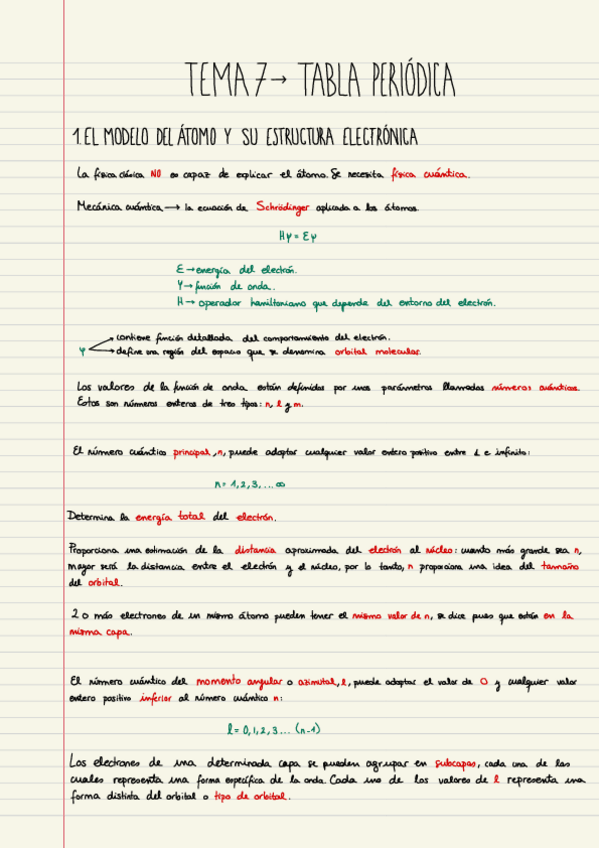 TEMA 7→ TABLA PERIÓDICA
1. EL MODELO DEL ÁTOMO Y SU ESTRUCTURA ELECTRÓNICA
La física clásica NO es capaz de explicar el átomo. Se necesita física cuántica.
Mecánica cuántica → la ecuación de Schrödinger aplicada a los átomos.
Hψ = Eψ
E → energía del electrón.
Ψ → función de onda.
H → operador hamiltoniano que depende del entorno del electrón.
contiene función detallada del comportamiento del electrón.
ψ
define una región del espacio que se denomina orbital molecular.
Los valores de la función de onda están definidos por unos parámetros llamados números cuánticos.
Estos son números enteros de tres tipos: n, l y m.
El número cuántico principal, n, puede adoptar cualquier valor entero positivo entre 1 e infinito:
n = 1, 2, 3, ... ∞
Determina la energía total del electrón.
Proporciona una estimación de la distancia aproximada del electrón al núcleo: cuanto más grande sea n,
mayor será la distancia entre el electrón y el núcleo, por lo tanto, n proporciona una idea del tamaño
del orbital.
2 o más electrones de un mismo átomo pueden tener el mismo valor de n, se dice pues que están en la
misma capa.
El número cuántico del momento angular o azimutal, l, puede adoptar el valor de 0 y cualquier valor
entero positivo inferior al número cuántico n:
l = 0, 1, 2, 3 ... (n-1)
Los electrones de una determinada capa se pueden agrupar en subcapas, cada una de las
cuales representa una forma específica de la onda. Cada uno de los valores de l representa una
forma distinta del orbital o tipo de orbital.